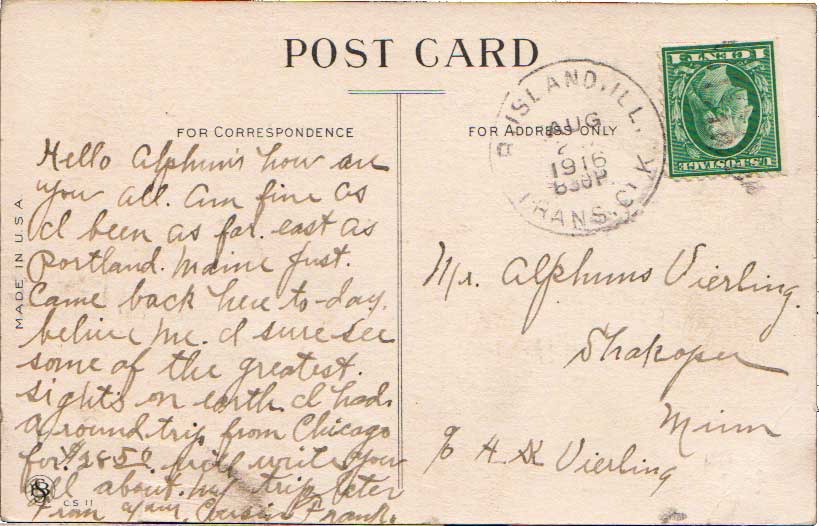 POST CARD
FOR CORRESPONDENCE
FOR ADDRESS ONLY
MADE IN U.S.A.
Hello Alphuns how are
you all. Am fine as
I been as far. east as
Portland. Maine Just.
Came back here to-day.
belive me. I sure see
some of the greatest.
sights on earth I had.
a round trip from Chicago
for. $28.50. will write you
all about. my trip later
From your Cousin Frank.
CS 11
R ISLAND, ILL.
AUG
1916
TRANS. CLK
1 CENT 1
U.S. POSTAGE
Mr. Alphuns Vierling.
Shakopee
Minn
c/o H Vierling